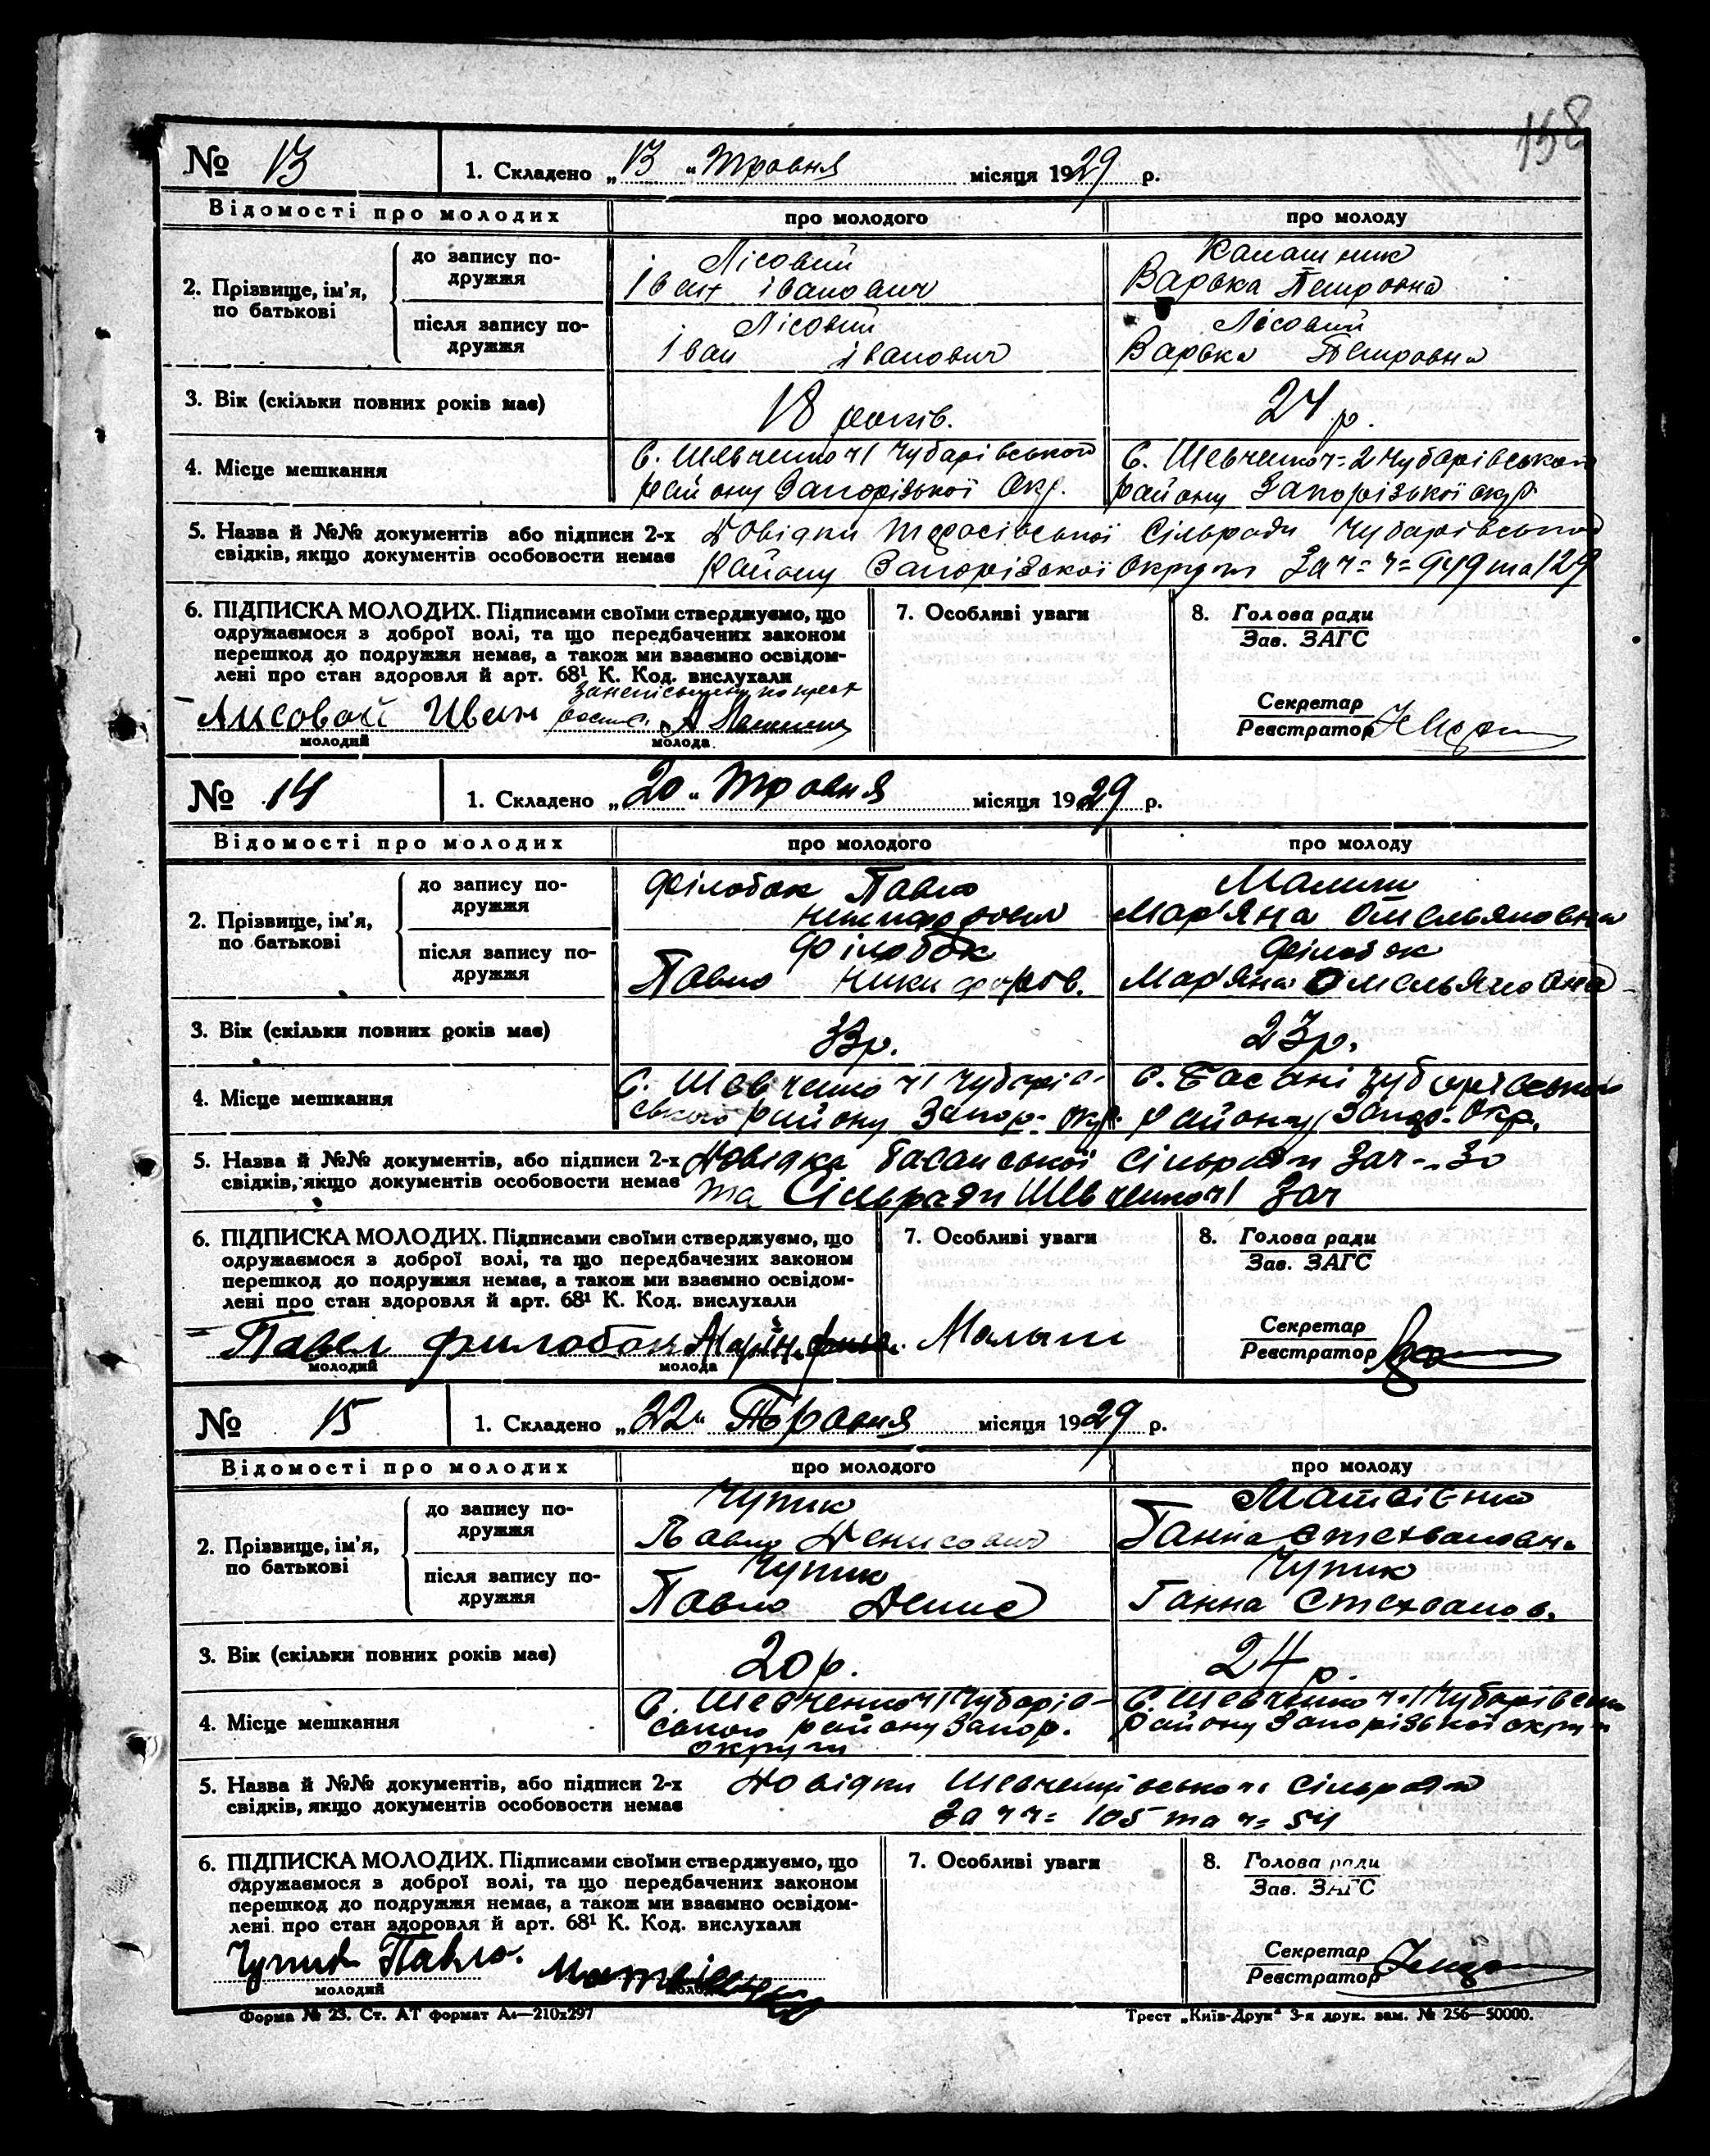 158
№ 13 1. Складено „13“ Травня місяця 1929 р.
Відомості про молодих про молодого про молоду
2. Прізвище, ім'я, по батькові
до запису подружжя
Лісовий
Іван Іванович
Калашник
Варька Петровна
після запису подружжя
Лісовий
Іван Іванович
Лісовий
Варька Петровна
3. Вік (скільки повних років має) 18 років. 24 р.
4. Місце мешкання
С. Шевченко ч1 Чубарівського
району Запорізької Окр.
С. Шевченко ч=2 Чубарівського
району Запорізької окр
5. Назва й №№ документів або підписи 2-х
свідків, якщо документів особовости немає
Довідки Тарасівської Сільради Чубарівського
Району Запорізької Округи За ч= ч= 949 та 129
6. ПІДПИСКА МОЛОДИХ. Підписами своїми стверджуємо, що
одружаємося з доброї волі, та що передбачених законом
перешкод до подружжя немає, а також ми взаємно освідом-
лені про стан здоровля й арт. 68¹ К. Код. вислухали
Лисовой Иван
молодий молода
7. Особливі уваги
8. Голова ради
Зав. ЗАГС
Секретар
Реєстратор
№ 14 1. Складено „20“ Травня місяця 1929 р.
Відомості про молодих про молодого про молоду
2. Прізвище, ім'я, по батькові
до запису подружжя
Філобок Павло
Никифорович
Малиш
Мар'яна Омельяновна
після запису подружжя
Філобок
Павло Никифоров.
Філобок
Мар'яна Омельяновна
3. Вік (скільки повних років має) 33р. 23р.
4. Місце мешкання
С. Шевченко ч1 Чубарів-
ського району Запор. окр.
с. Басані Чубарівського
району Запор. Окр.
5. Назва й №№ документів, або підписи 2-х
свідків, якщо документів особовости немає
Довідка Басанської Сільради За ч - 30
та Сільради Шевченко ч1 За ч
6. ПІДПИСКА МОЛОДИХ. Підписами своїми стверджуємо, що
одружаємося з доброї волі, та що передбачених законом
перешкод до подружжя немає, а також ми взаємно освідом-
лені про стан здоровля й арт. 68¹ К. Код. вислухали
Павел Филобок
молодий молода
7. Особливі уваги
Малыш
8. Голова ради
Зав. ЗАГС
Секретар
Реєстратор
№ 15 1. Складено „22“ Травня місяця 1929 р.
Відомості про молодих про молодого про молоду
2. Прізвище, ім'я, по батькові
до запису подружжя
Чупик
Павло Денисович
Матвієнко
Ганна Стехванован.
після запису подружжя
Чупик
Павло Денис
Чупик
Ганна Стехванов.
3. Вік (скільки повних років має) 20р. 24 р.
4. Місце мешкання
С. Шевченко ч1 Чубарів-
ського району Запор.
округи
С. Шевченко ч=1 Чубарівсько
Району Запорізької округи
5. Назва й №№ документів, або підписи 2-х
свідків, якщо документів особовости немає
Довідки Сільради
За ч ч= 105 та ч= 54
6. ПІДПИСКА МОЛОДИХ. Підписами своїми стверджуємо, що
одружаємося з доброї волі, та що передбачених законом
перешкод до подружжя немає, а також ми взаємно освідом-
лені про стан здоровля й арт. 68¹ К. Код. вислухали
Чупик Павло. Матвієнко
молодий молода
7. Особливі уваги
8. Голова ради
Зав. ЗАГС
Секретар
Реєстратор
Форма № 23. Ст. АТ формат А₄—210х297 Трест „Київ-Друк“ 3-я друк. зам. № 256—50000.